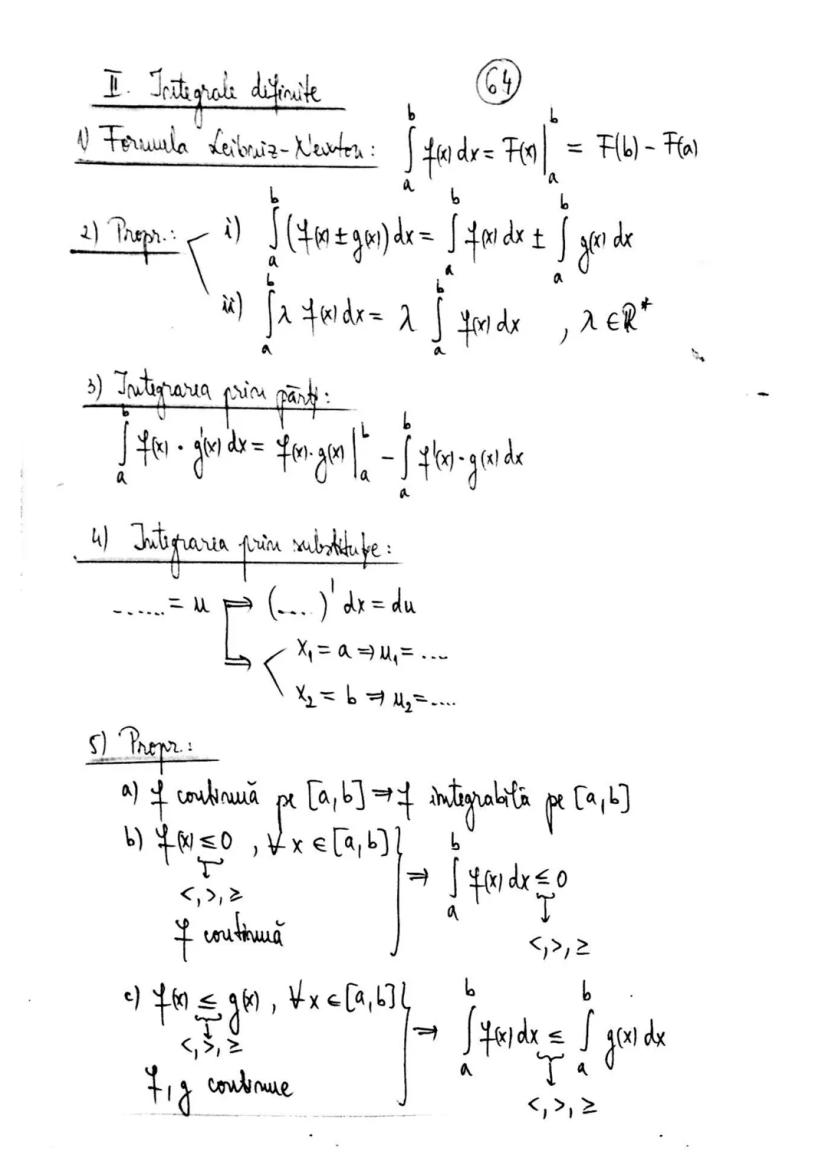 II. Integrale definite (64)
1) Formula Leibniz-Newton: ∫_a^b f(x) dx = F(x) |_a^b = F(b) - F(a)
2) Propr.: i) ∫_a^b (f(x) ± g(x)) dx = ∫_a^b f(x) dx ± ∫_a^b g(x) dx
ii) ∫_a^b λ f(x) dx = λ ∫_a^b f(x) dx , λ ∈ ℝ*
3) Integrarea prin părți:
∫_a^b f(x) · g'(x) dx = f(x)·g(x) |_a^b - ∫_a^b f'(x)·g(x) dx
4) Integrarea prin substituție:
...... = u ⇒ (....)' dx = du
⇒ x₁ = a ⇒ u₁ = ....
x₂ = b ⇒ u₂ = ....
5) Propr.:
a) f continuă pe [a,b] ⇒ f integrabilă pe [a,b]
b) f(x) ≤ 0 , ∀ x ∈ [a,b] } ⇒ ∫_a^b f(x) dx ≤ 0
<, >, ≥
f continuă <, >, ≥
c) f(x) ≤ g(x) , ∀ x ∈ [a,b] } ⇒ ∫_a^b f(x) dx ≤ ∫_a^b g(x) dx
<, >, ≥
f, g continue <, >, ≥